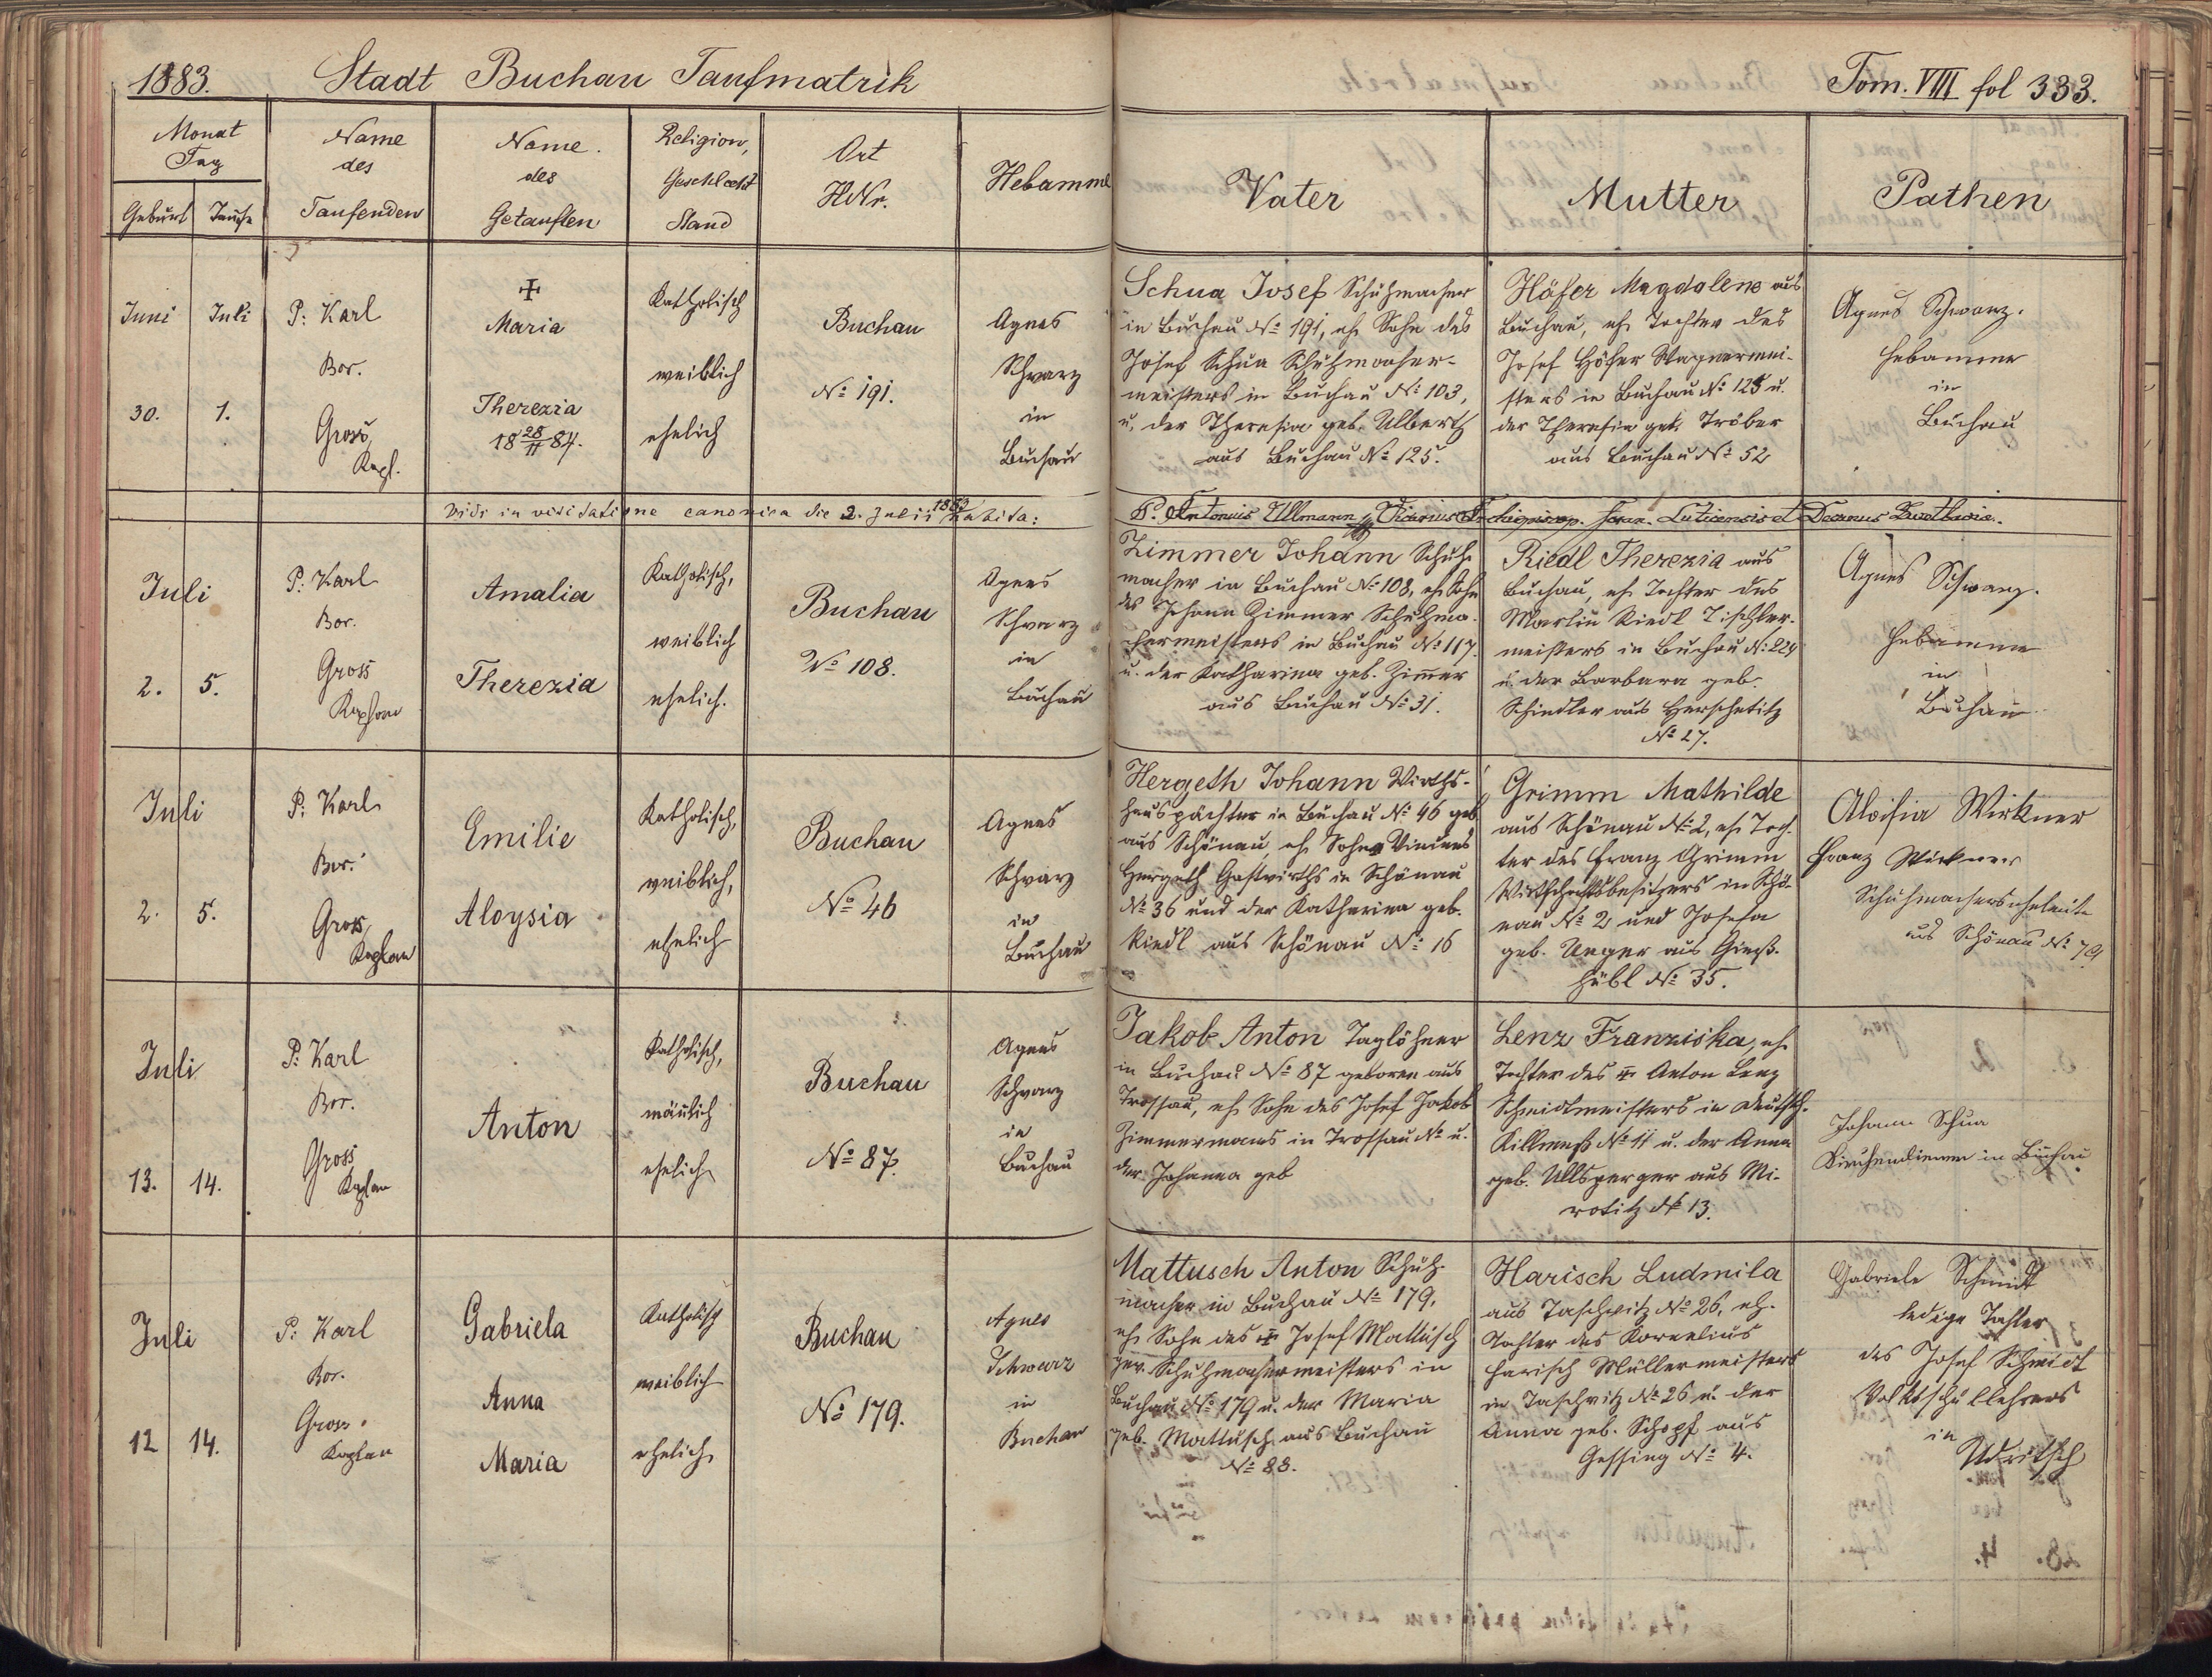 1883. Stadt Buchau Taufmatrik
Tom. VIII fol 333.
Monat
Tag
Geburt Taufe
Name
des
Taufenden
Name.
des
Getauften
Religion,
Geschlecht
Stand
Ort
HNr.
Hebamme
Vater
Mutter
Pathen
Juni Juli
30. 1.
P: Karl
Bor.
Gross,
Kapl.
Maria
Therezia
18 28/11 84.
Katholisch
weiblich
ehelich
Buchau
No 191.
Agnes
Schwarz
in
Buchau
Schua Josef Schuhmacher
in Buchau No 191, eh. Sohn des
Josef Schua Schuhmacher-
meisters in Buchau No 103,
u. der Theresia geb. Ulbert
aus Buchau No 125.
Höfer Magdalena aus
Buchau, eh. Tochter des
Josef Höfer Wagnermei-
sters in Buchau No 125 u.
der Theresia geb. Tröber
aus Buchau No 52
Agnes Schwarz.
Hebamme
in
Buchau
Vidi in visitatione canonica die 2. Julii 1883 habita:
P. Antonius Ullmann Vicarius
Juli
2. 5.
P: Karl
Bor.
Gross
Kaplan
Amalia
Therezia
Katholisch,
weiblich
ehelich.
Buchau
No 108.
Agnes
Schwarz
in
Buchau
Zimmer Johann Schuh-
macher in Buchau No 108, eh. Sohn
des Johann Zimmer Schuhma-
chermeisters in Buchau No 117.
u. der Katharina geb. Zimmer
aus Buchau No 31.
Riedl Therezia aus
Buchau, eh. Tochter des
Martin Riedl Tischler-
meisters in Buchau No 229
u. der Barbara geb.
Schindler aus Herschetitz
No 27.
Agnes Schwarz.
Hebamme
in
Buchau
Juli
2. 5.
P: Karl
Bor.
Gross,
Kaplan
Emilie
Aloysia
Katholisch,
weiblich,
ehelich
Buchau
No 46
Agnes
Schwarz
in
Buchau
Hergeth Johann Wirths-
hauspächter in Buchau No 46 geb.
aus Schönau, eh. Sohn
Hergeth Gastwirths in Schönau
No 36 und der Katharina geb.
Riedl aus Schönau No 16
Grimm Mathilde
aus Schönau No 2, eh. Toch-
ter des Franz Grimm
Wirthschaftsbesitzers in Schö-
nau No 2 und Josefa
geb. Unger aus Gieß-
hübl No 35.
Aloisia Wirkner
Franz Wirkner
Schuhmacherseheleute
aus Schönau No 79
Juli
13. 14.
P: Karl
Bor.
Gross
Kaplan
Anton
Katholisch,
mänlich
ehelich
Buchau
No 87.
Agnes
Schwarz
in
Buchau
Jakob Anton Taglöhner
in Buchau No 87 geboren aus
Trossau, eh. Sohn des Josef Jakob
Zimmermanns in Trossau No u.
der Johanna geb
Lenz Franziska, eh.
Tochter des Anton Lenz
Schmidtmeisters in Deutsch-
Killmeß No 11 u. der Anna
geb. Ullsperger aus Mi-
rotitz No 13.
Johann Schua
Kirchendiener in Buchau
Juli
12 14.
P: Karl
Bor.
Gross.
Kaplan
Gabriela
Anna
Maria
Katholisch
weiblich
ehelich
Buchau
No 179.
Agnes
Schwarz
in
Buchau
Mattusch Anton Schuh-
macher in Buchau No 179,
eh. Sohn des Josef Mattusch
gew. Schuhmachermeisters in
Buchau No 179 u. der Maria
geb. Mattusch aus Buchau
No 88.
Harisch Ludmila
aus Taschwitz No 26, eh.
Tochter des Kornelius
Harisch Müllermeisters
in Taschwitz No 26 u. der
Anna geb. Schopf aus
Gessing No 4.
Gabriele Schmidt
ledige Tochter
des Josef Schmidt
Volksschullehrers
in
Udritsch